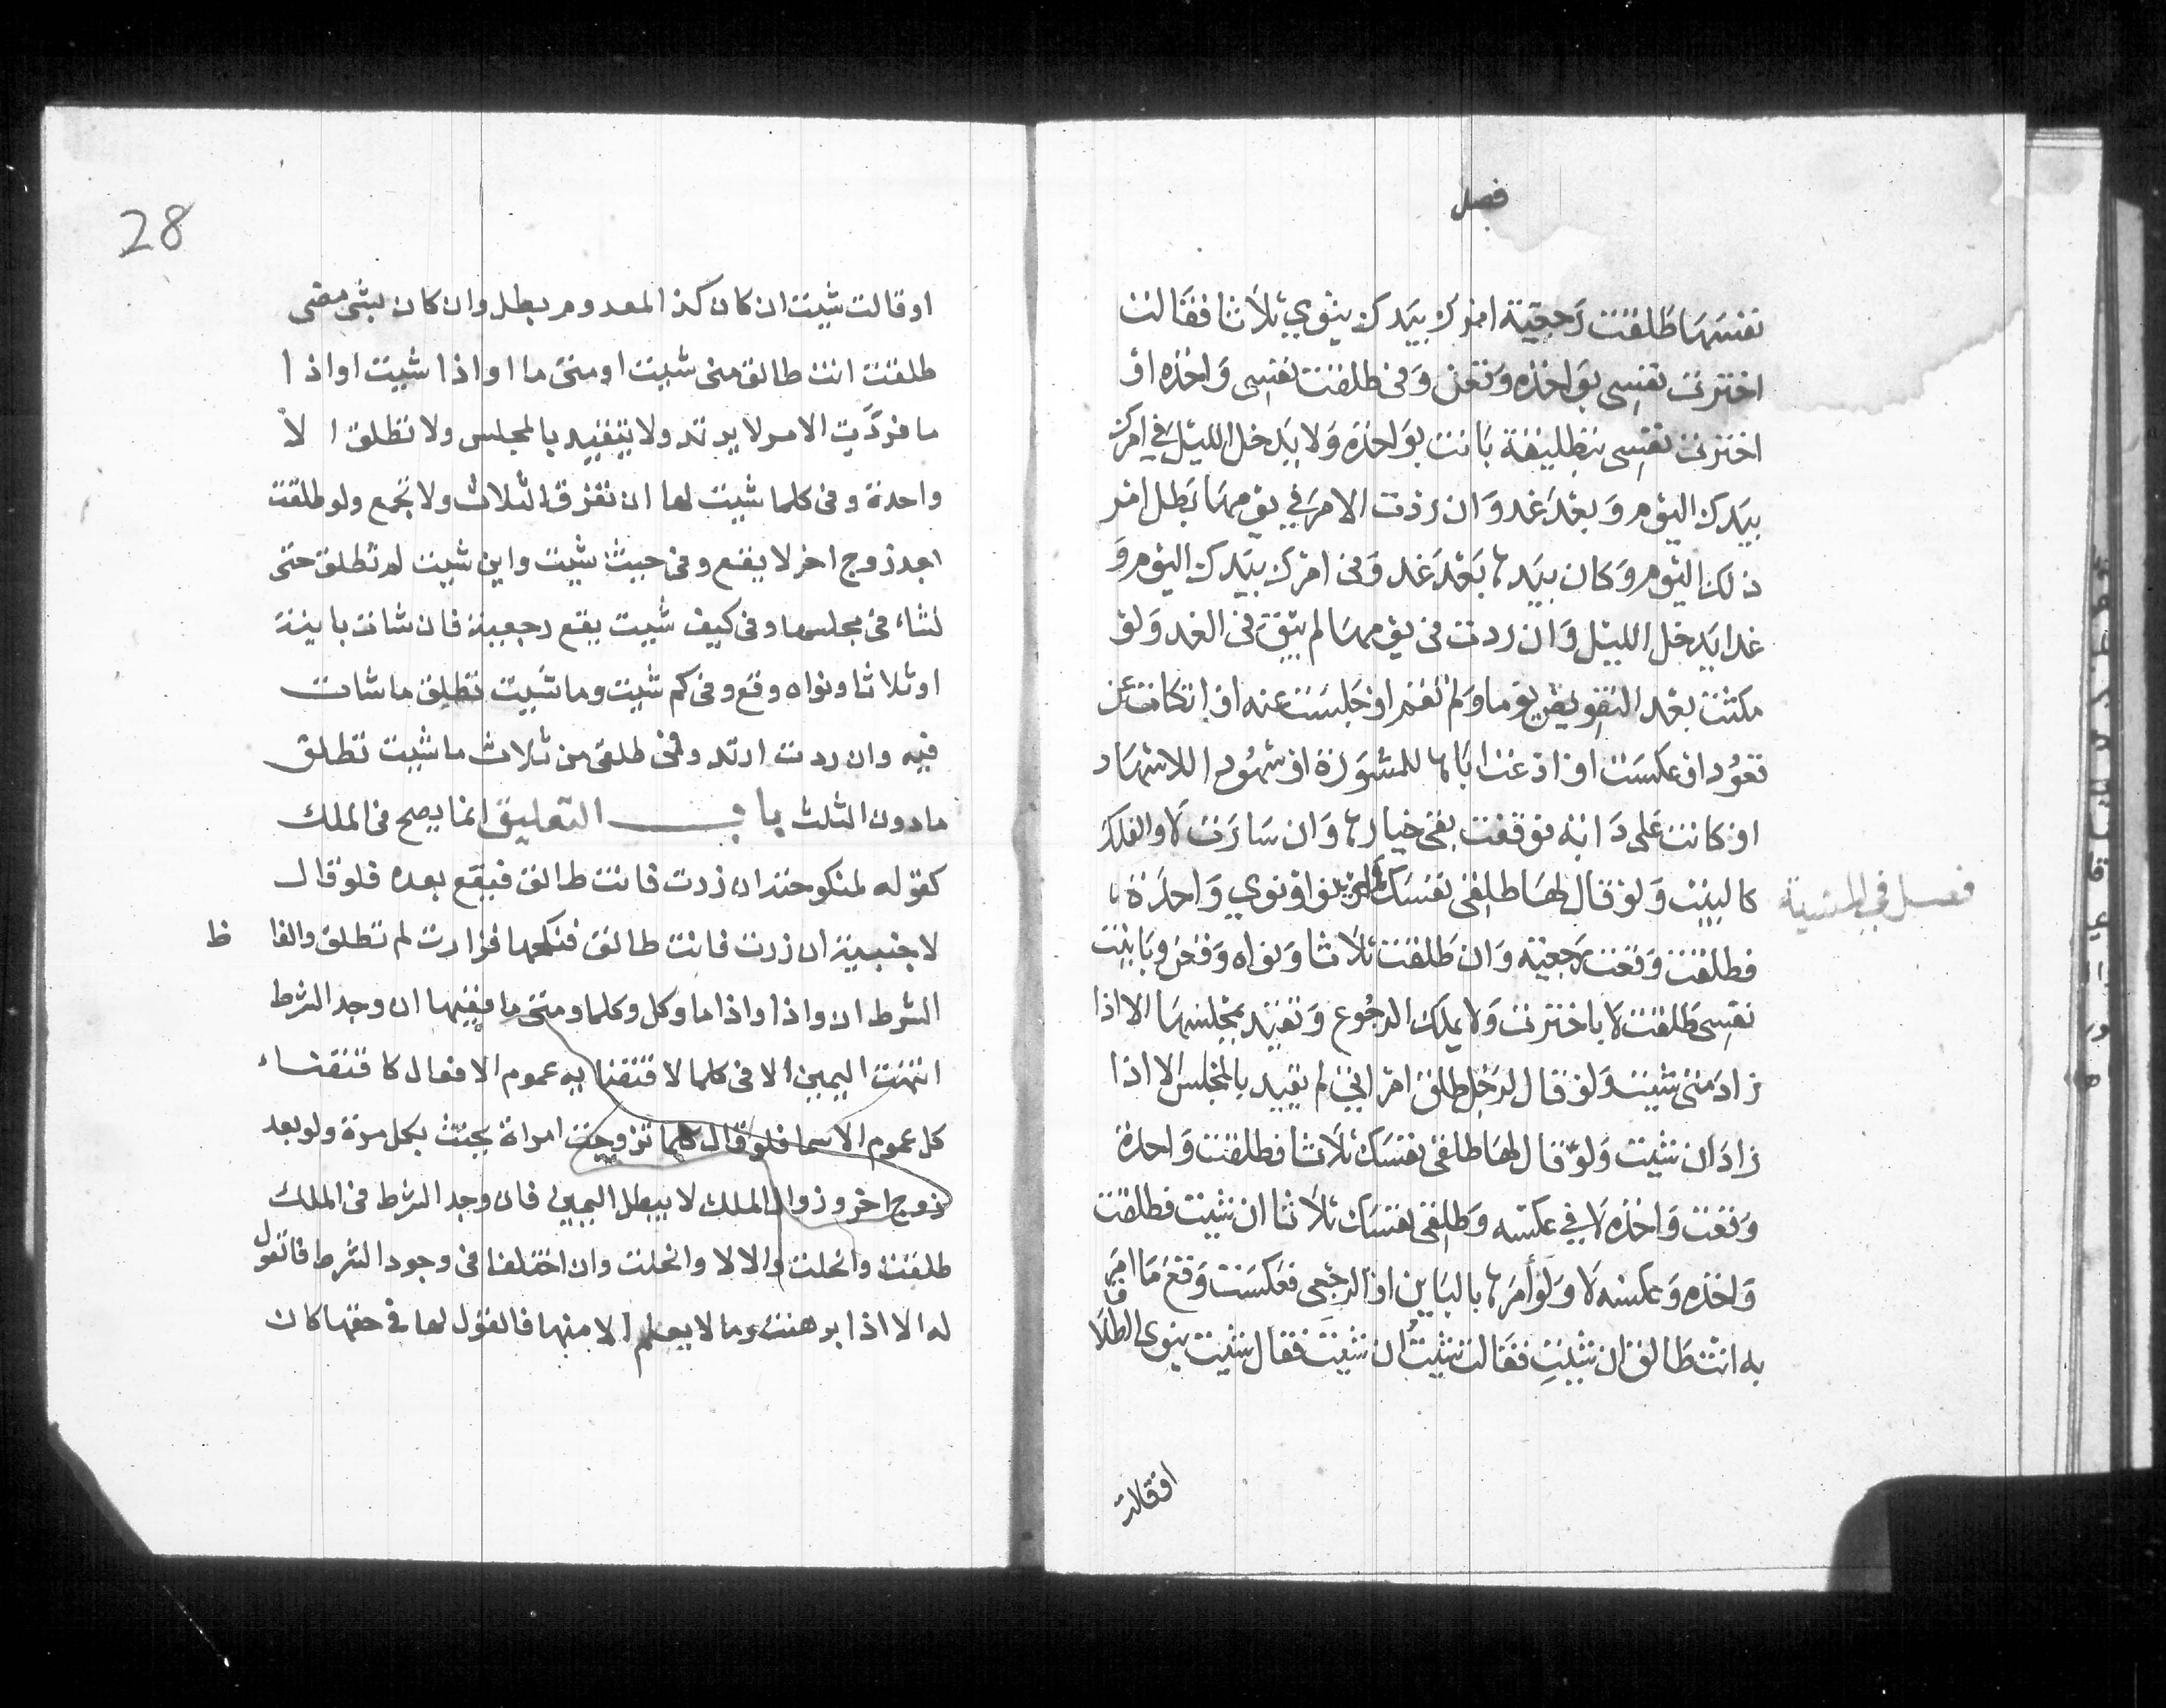 فصل
نفسها طلقت رجعية امرك بيدك ينوي ثلاثا فقالت
اخترت نفسي بواحدة وقعن وفى طلقت نفسي واحدة او
اخترت نفسي بتطليقة بانت بواحدة ولا يدخل الليل في امرك
بيدك اليوم وبعد غد وان ردت الامر في يومها بطل امر
ذلك اليوم وكان بيدها بعد غد وفى امرك بيدك اليوم و
غدا يدخل الليل وان ردت فى يومها لم يبق فى الغد ولو
مكثت بعد التفويض يوما ولم تقم او جلست عنه او اتكات عن
قعود او عكست او دعت اباها للمشورة او شهودا للاشهاد
او كانت على دابة فوقفت بقى خيارها وان سارت لا والفلك
كالبيت ولو قال لها طلقى نفسك ولم ينو او نوي واحدة
فصل في المشية
فطلقت وقعت رجعية وان طلقت ثلاثا ونواه وقعن وبابنت
نفسى طلقت لا باخترت ولا يملك الرجوع وتقيد بمجلسها الا اذا
زاد متى شيت ولو قال لرجل طلق امراتي لم يقيد بالمجلس الا اذا
زاد ان شيت ولو قال لها طلقى نفسك ثلاثا فطلقت واحدة
وقعت واحدة لا في عكسه وطلقى نفسك ثلاثا ان شيت فطلقت
واحدة وعكسه لا ولو أمرها بالباين او الرجعى فعكست وقع ما امر
به انت طالق ان شيتِ فقالت شيتُ ان شيتَ فقال شيت ينوى الطلاق
او قالت
28
او قالت شيت ان كان كذا المعدوم بطل وان كان بشى مضى
طلقت انت طالق متى شيت او متى ما او اذا شيت او اذا
ما فردّت الامر لا يرتد ولا يتقيد بالمجلس ولا تطلق الا
واحدة وفى كلما شيت لها ان تفرق الثلاث ولا تجمع ولو طلقت
بعد زوج اخر لا يقع وفى حيث شيت واين شيت لم تطلق حتى
تشاء فى مجلسها وفى كيف شيت يقع رجعية فان شات باينة
او ثلاثا ونواه وقع وفى كم شيت وما شيت تطلق ما شات
فيه وان ردت ارتد وفى طلقى من ثلاث ما شيت تطلق
مادون الثلث باب التعليق انما يصح فى الملك
كقوله لمنكوحته ان زرت فانت طالق فيقع بعده فلو قال
لاجنبية ان زرت فانت طالق فنكحها فزارت لم تطلق والفا ظ
الشرط ان واذا واذا ما وكل وكلما ومتى ما ففيها ان وجد الشرط
انتهت اليمين الا فى كلما لاقتضايه عموم الافعال كاقتضاء
كل عموم الاسما فلو قال كلما تزوجت امراة يحنث بكل مرة ولو بعد
زوج اخر وزوال الملك لا يبطل اليمين فان وجد الشرط فى الملك
طلقت وانحلت والا لا وانحلت وان اختلفا فى وجود الشرط فالقول
له الا اذا برهنت وما لا يعلم الا منها فالقول لها في حقها كان